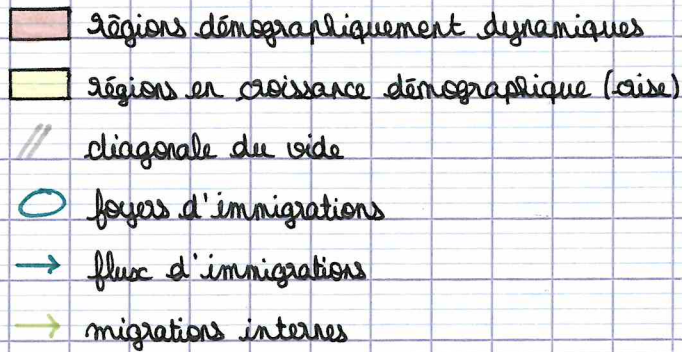 régions démographiquement dynamiques
régions en croissance démographique (crise)
diagonale du vide
foyers d'immigrations
flux d'immigrations
migrations internes